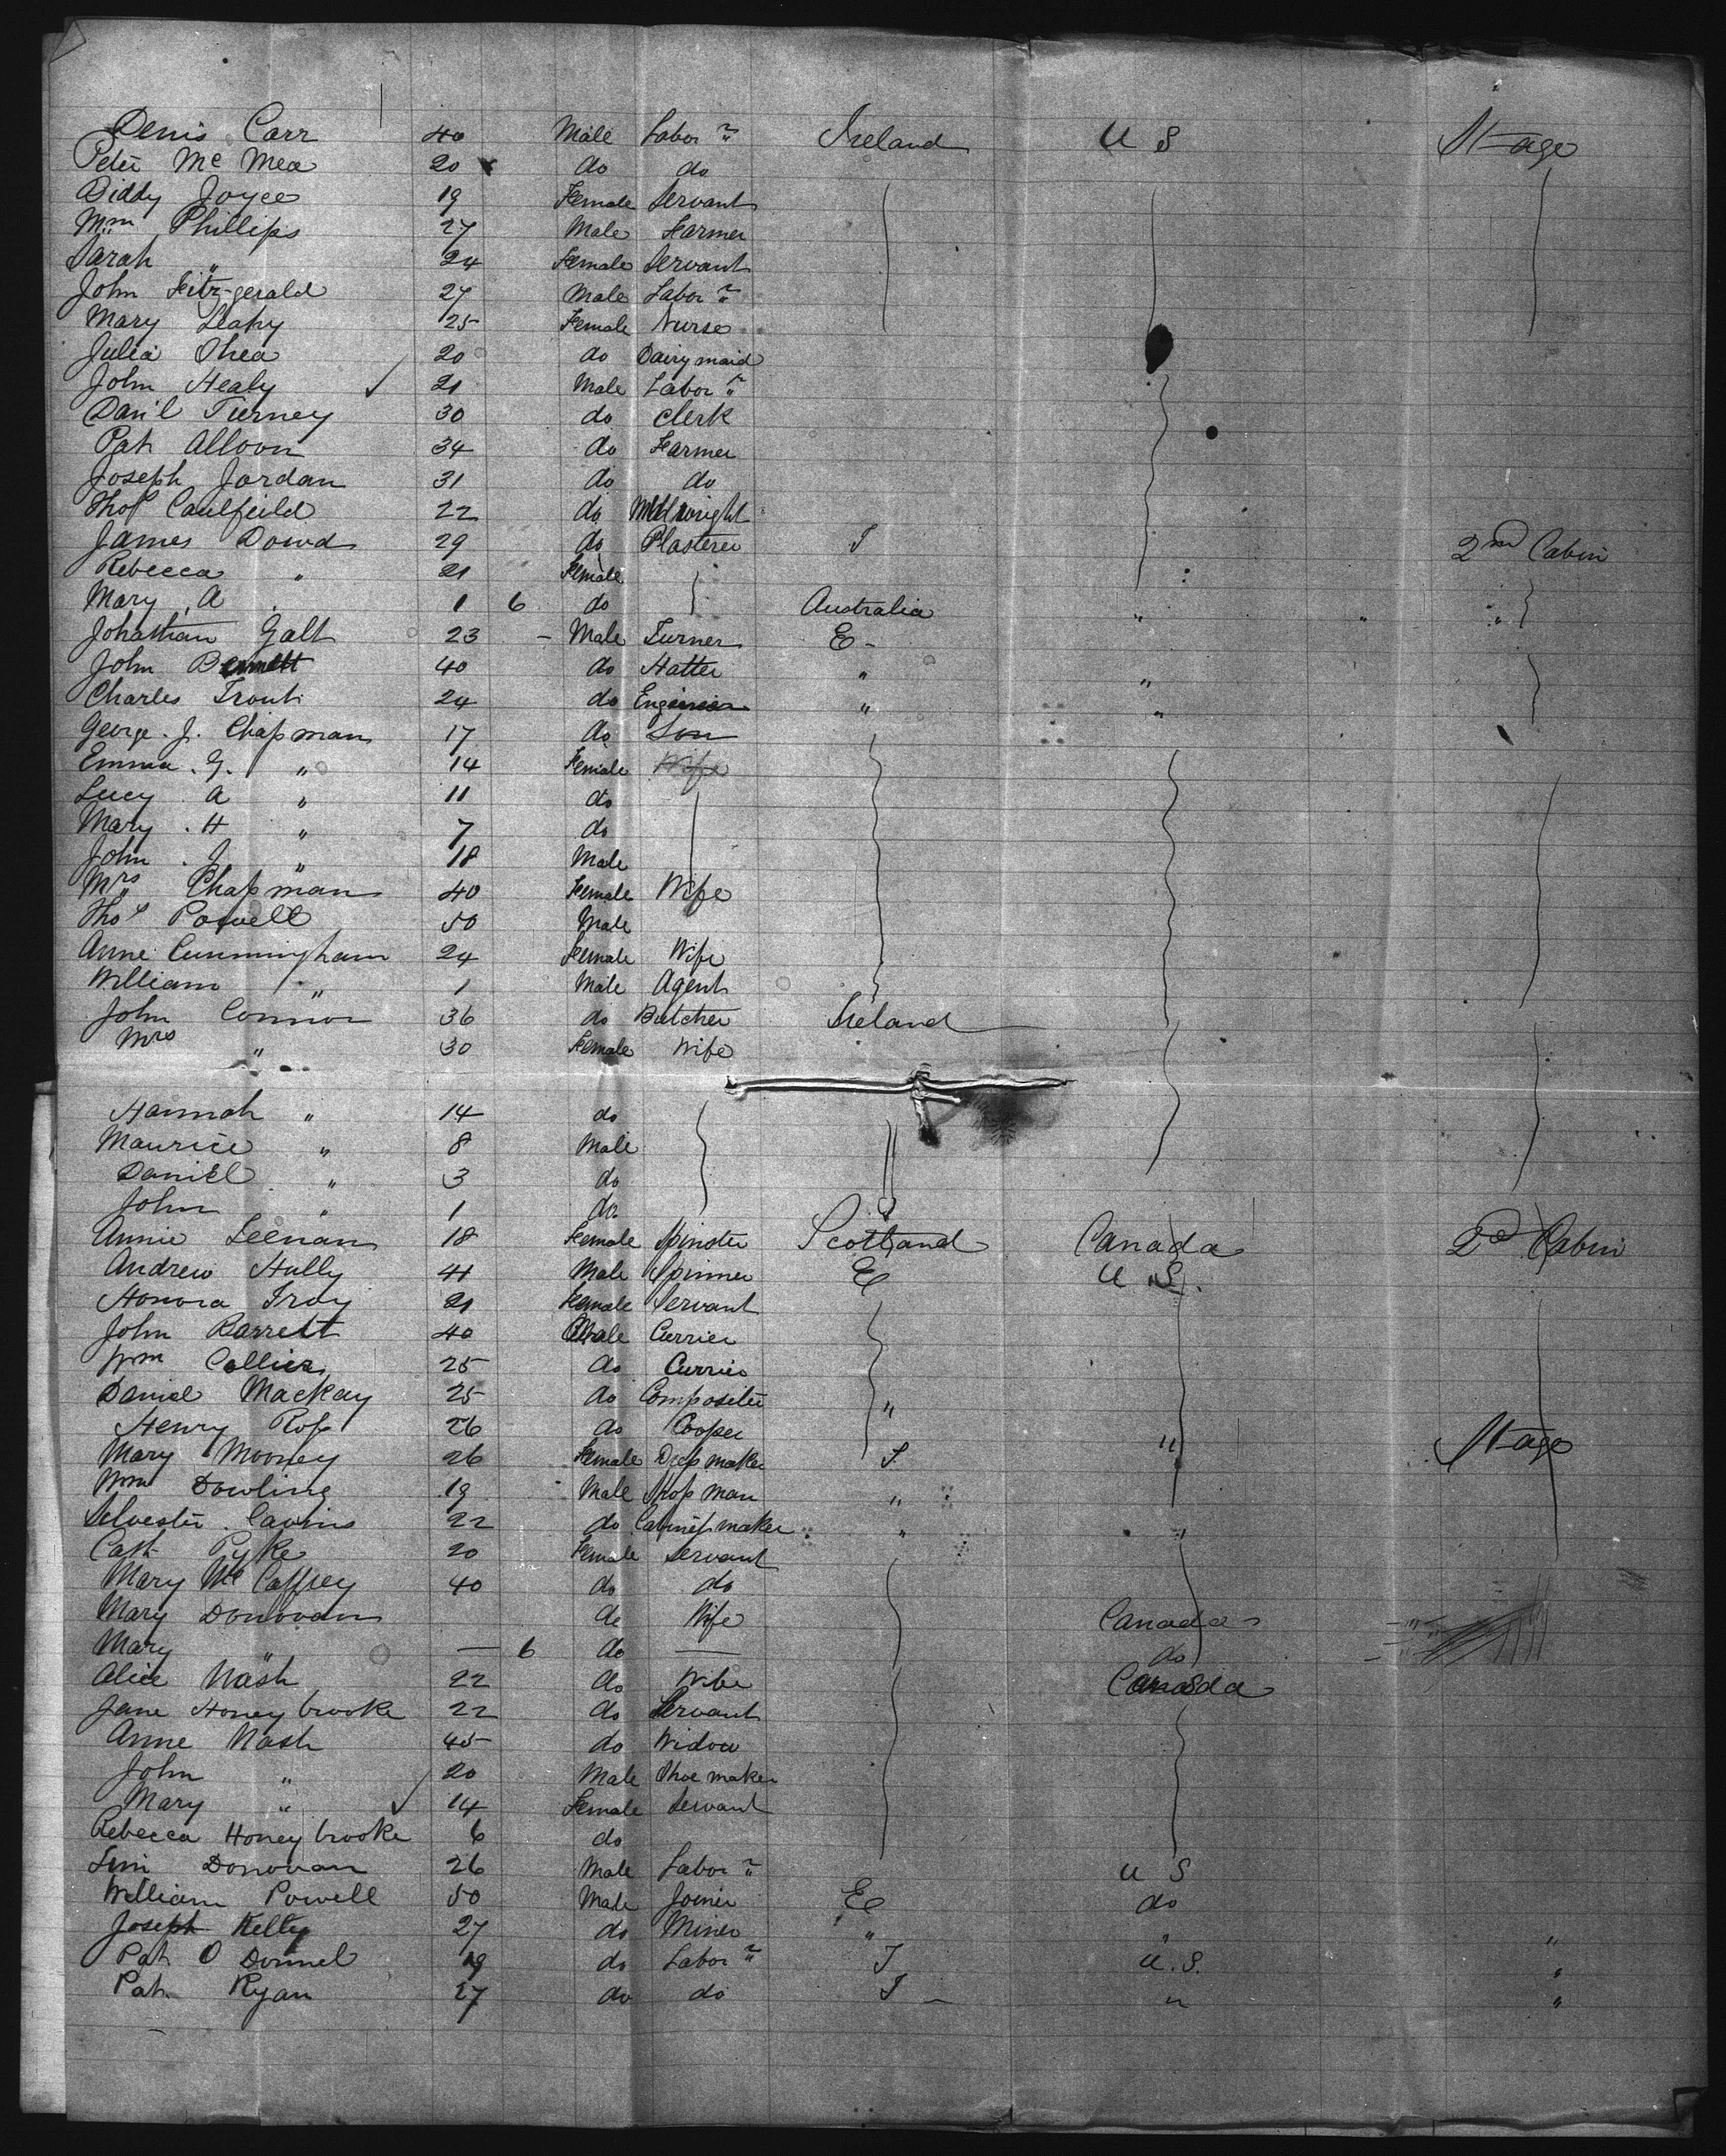 Denis Carr 40 Male Labor r Ireland U S St-age
Peter Mc Mea 20 x do do
Biddy Joyce 19 Female Servant
Wm Phillips 27 Male Farmer
Sarah " 24 Female Servant
John Fitz-gerald 27 Male Labor r
Mary Leahy 25 Female Nurse
Julia Shea 20 do Dairy maid
John Healy ✓ 21 Male Labor r
Danil Tierney 30 do Clerk
Pat Alloon 34 do Farmer
Joseph Jordan 31 do do
Thos Caulfeild 22 do Millwright
James Dowd 29 do Plasterer I 2nd Cabin
Rebecca " 21 Female
Mary A 1 6 do Australia " " "
Johathan Galt 23 - Male Turner E -
John Bennett 40 do Hatter " "
Charles Trout 24 do Engineer " "
George. J. Chapman 17 do Son
Emma. G. " 14 Female Wife
Lucy A " 11 do
Mary. H " 7 do
John. J " 18 Male
Mrs Chapman 40 Female Wife
Thos Powell 50 Male
Anne Cunningham 24 Female Wife
William " 1 Male Agent
John Connor 36 do Butcher Ireland
Mrs " 30 Female Wife
Hannah " 14 do
Maurice " 8 Male
Daniel " 3 do
John " 1 do
Annie Leenan 18 Female Spinster Scotland Canada 2d Cabin
Andrew Hully 41 Male Spinner E U.S.
Honora Troy 21 Female Servant
John Barrett 40 Male Currier
Wm Collier 25 do Currier
Daniel Mackay 25 do Compositer "
Henry Ross 26 do Cooper
Mary Mooney 26 Female Dress maker I " St-age
Wm Dowling 19 Male Shop man "
Silvester Cavins 22 do Cabinet maker " "
Cath Pyke 20 Female Servant
Mary Mc Caffrey 40 do do
Mary Donovan do Wife Canada
Mary " — 6 do — do
Alice Nash 22 do Wife Canada
Jane Honeybrooke 22 do Servant
Anne Nash 45 do Widow
John " 20 Male Shoe maker
Mary " ✓ 14 Female Servant
Rebecca Honeybrooke 6 do
Donovan 26 Male Labor r U S
William Powell 50 Male Joiner E do
Joseph Kelly 27 do Miner " " "
Pat O Donnel 19 do Labor r I U.S. "
Pat Ryan 27 do do I - " "